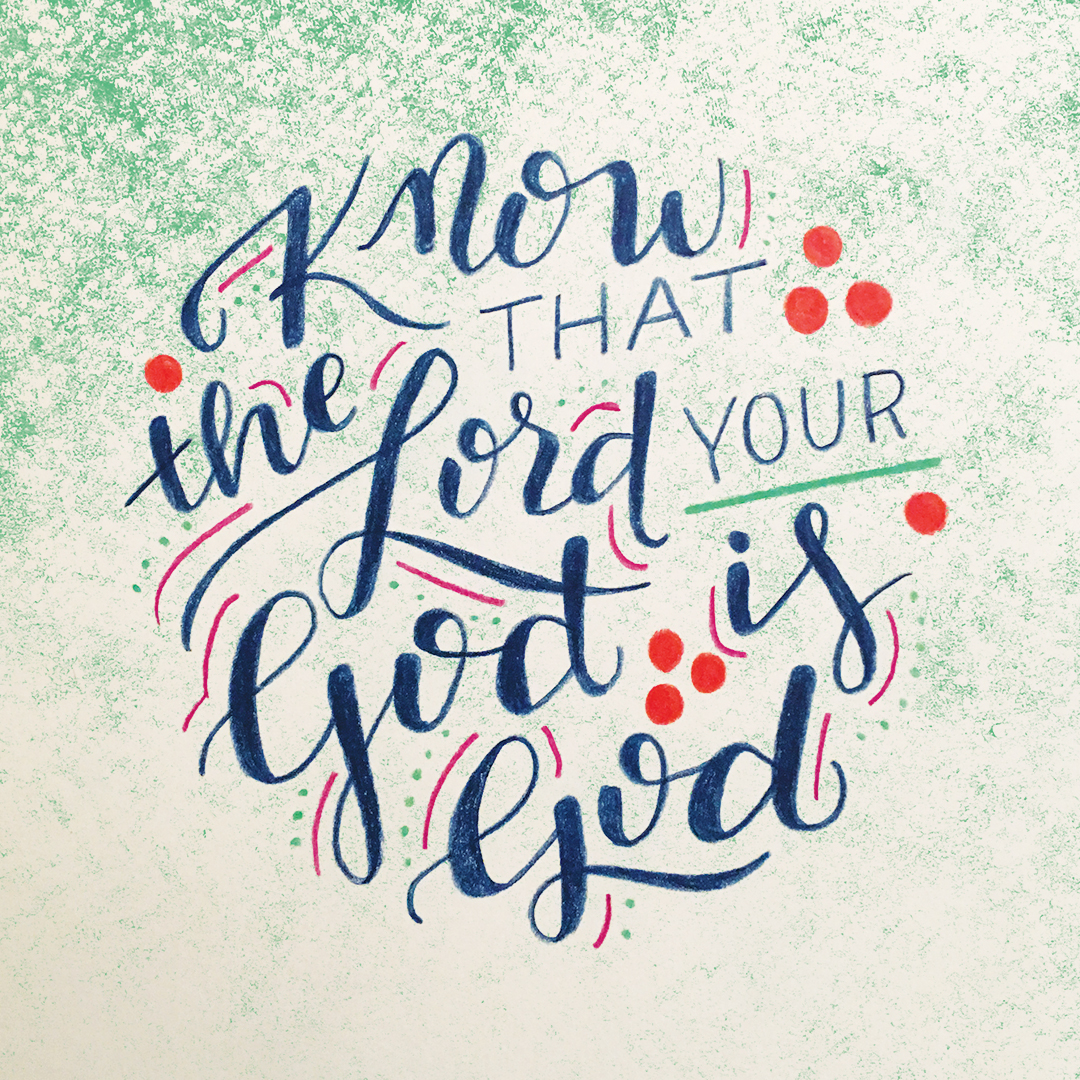 Know
THAT
the Lord YOUR
God is
God